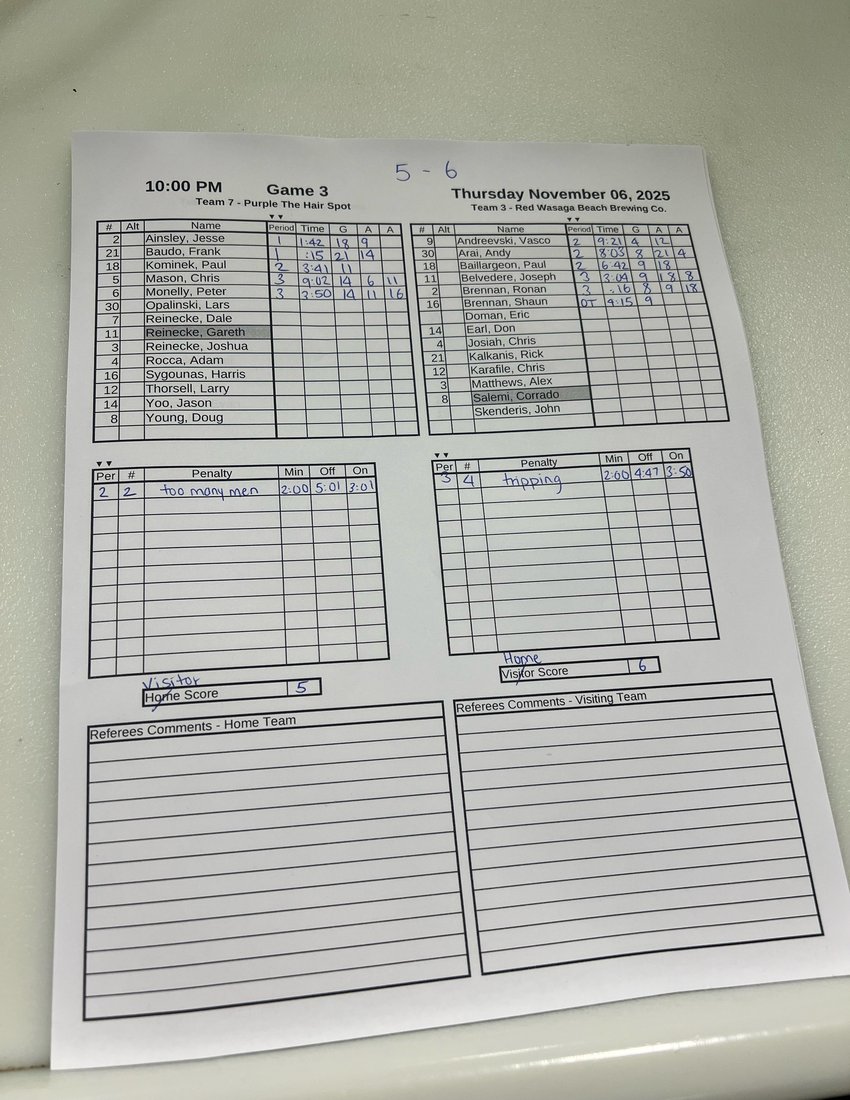 5 - 6
10:00 PM Game 3 Thursday November 06, 2025
Team 7 - Purple The Hair Spot
Team 3 - Red Wasaga Beach Brewing Co.
# Alt Name Period Time G A A
2 Ainsley, Jesse 1 1:42 18 9
21 Baudo, Frank 1 :15 21 14
18 Kominek, Paul 2 3:41 11
5 Mason, Chris 3 9:02 14 6 11
6 Monelly, Peter 3 3:50 14 11 16
30 Opalinski, Lars
7 Reinecke, Dale
11 Reinecke, Gareth
3 Reinecke, Joshua
4 Rocca, Adam
16 Sygounas, Harris
12 Thorsell, Larry
14 Yoo, Jason
8 Young, Doug
# Alt Name Period Time G A A
9 Andreevski, Vasco 2 9:21 4 12
30 Arai, Andy 2 8:03 8 21 4
18 Baillargeon, Paul 2 6:42 9 18
11 Belvedere, Joseph 3 3:04 9 18 8
2 Brennan, Ronan 3 :16 8 9 18
16 Brennan, Shaun OT 4:15 9
Doman, Eric
14 Earl, Don
4 Josiah, Chris
21 Kalkanis, Rick
12 Karafile, Chris
3 Matthews, Alex
8 Salemi, Corrado
Skenderis, John
Per # Penalty Min Off On
2 2 too many men 2:00 5:01 3:01
Per # Penalty Min Off On
3 4 tripping 2:00 4:47 3:50
Visitor
Home Score 5
Home
Visitor Score 6
Referees Comments - Home Team
Referees Comments - Visiting Team